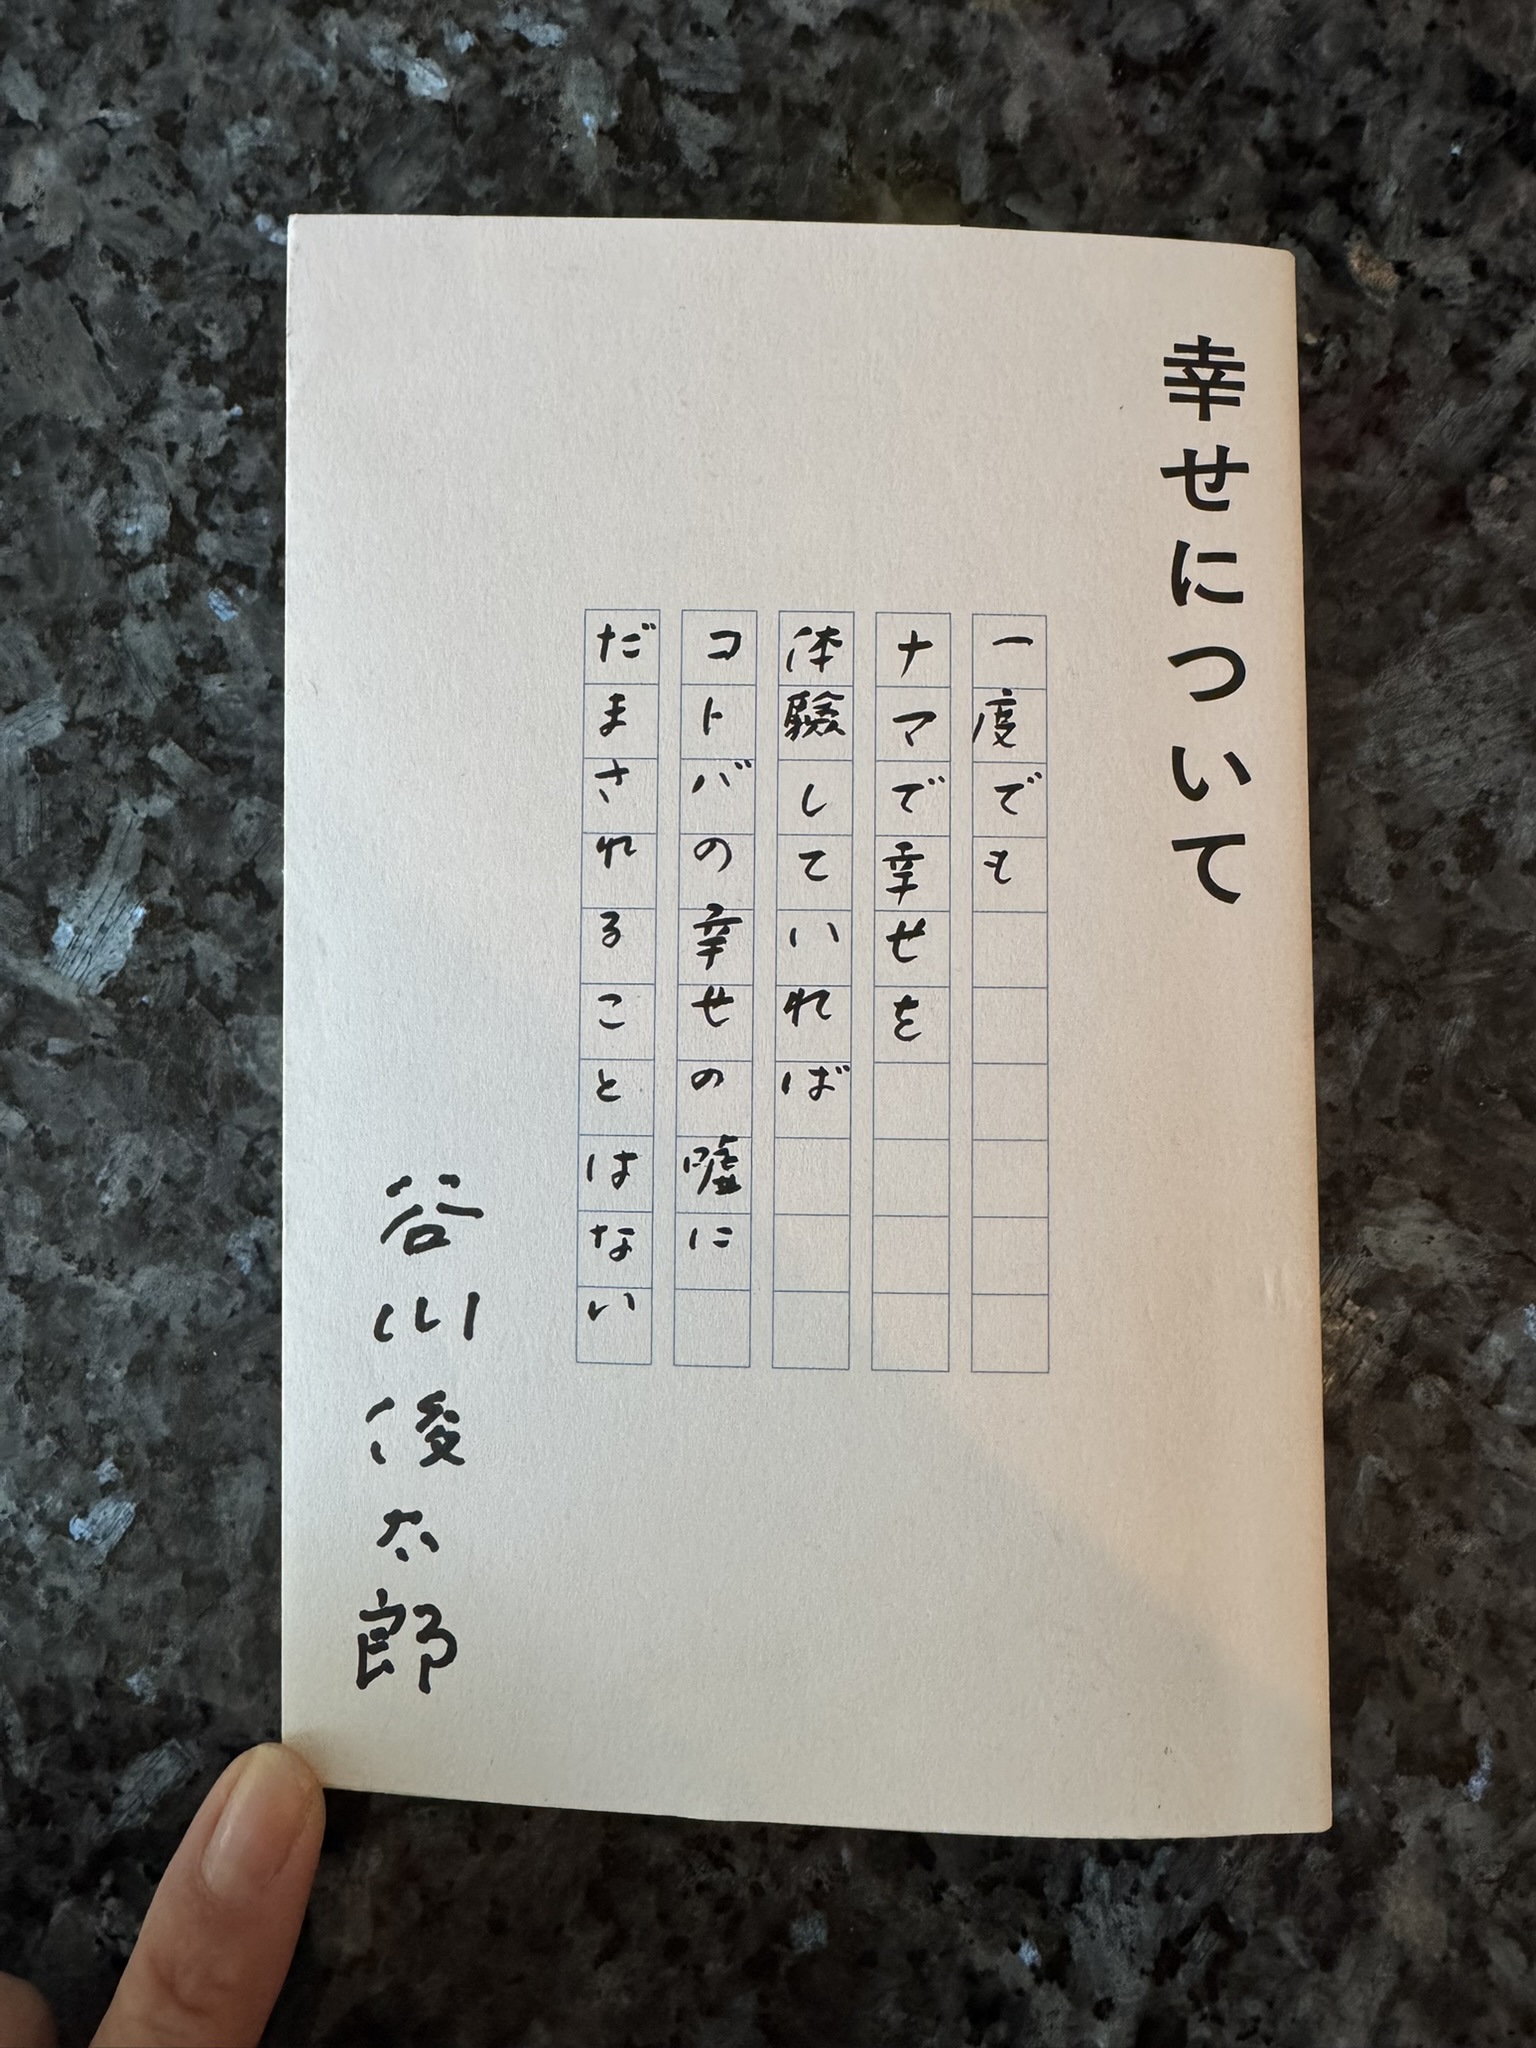 幸せについて
一度でも
ナマで幸せを
体験していれば
コトバの幸せの嘘に
だまされることはない
谷川俊太郎